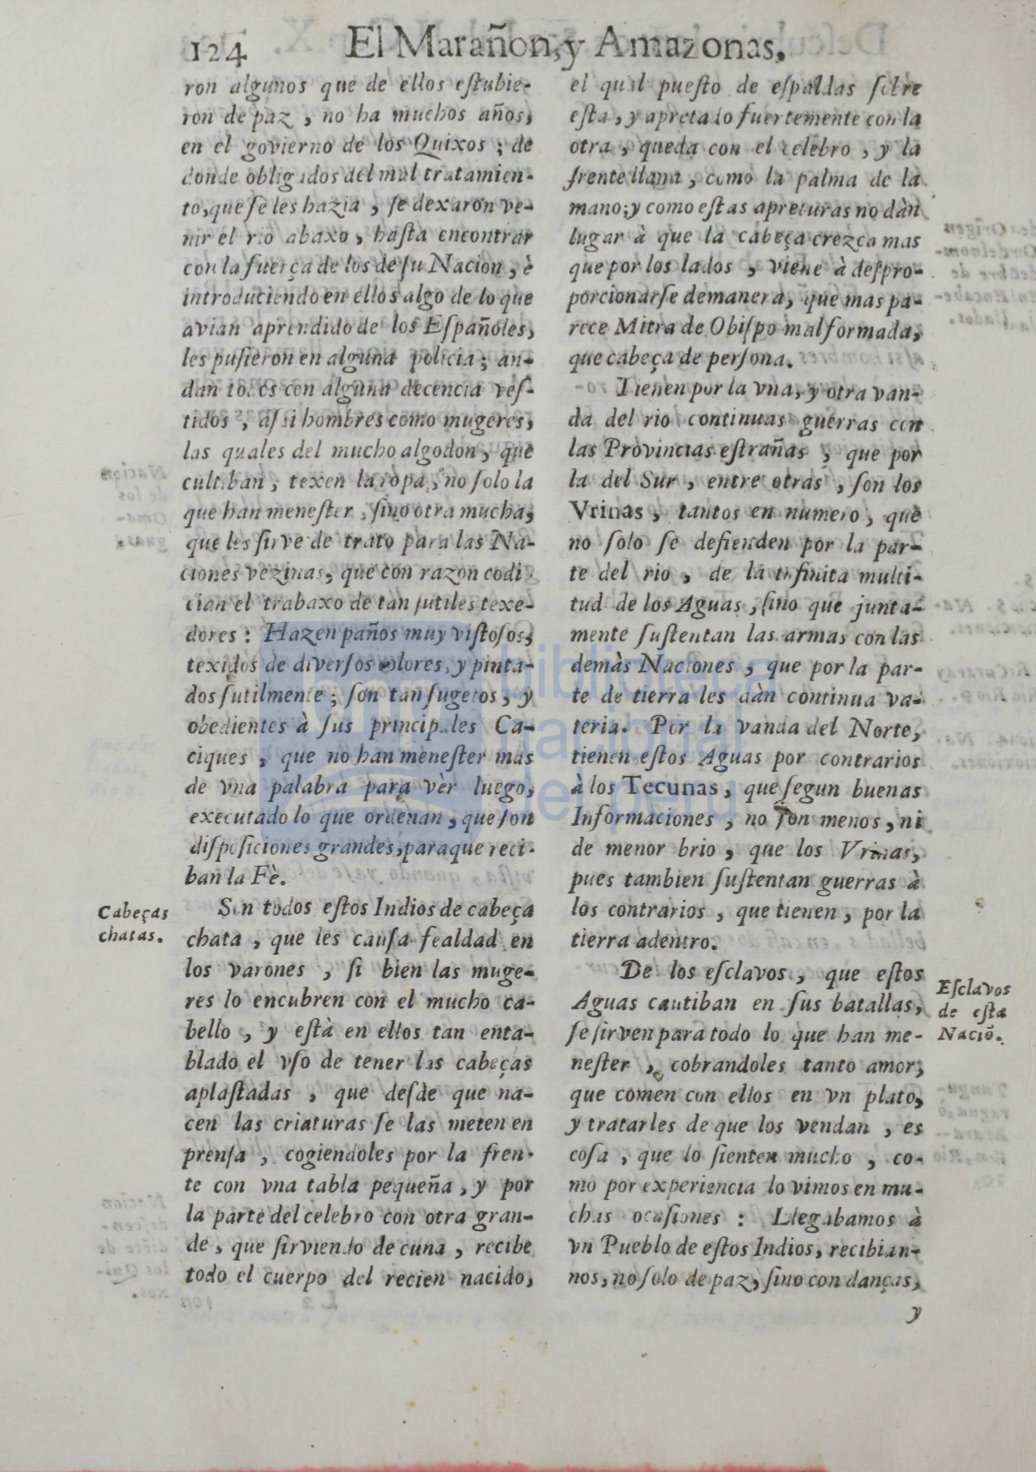 124 El Marañon, y Amazonas,
ron algunos que de ellos eſtubie-
ron de paz, no ha muchos años,
en el govierno de los Quixos; de
donde obligados del mal tratamien-
to, que ſe les hazia, ſe dexaron ve-
nir el rio abaxo, haſta encontrar
con la fuerça de los de ſu Nacion, è
introduciendo en ellos algo de lo que
avian aprendido de los Eſpañoles,
les puſieron en alguna policia; an-
dan todos con alguna decencia veſ-
tidos, aſsi hombres como mugeres,
las quales del mucho algodon, que
cultiban, texen la ropa, no ſolo la
que han meneſter, ſino otra mucha,
que les ſirve de trato para las Na-
ciones vezinas, que con razon codi-
cian el trabaxo de tan ſutiles texe-
dores: Hazen paños muy viſtoſos,
texidos de diverſos colores, y pinta-
dos ſutilmente; ſon tan ſugetos, y
obedientes à ſus principales Ca-
ciques, que no han meneſter mas
de vna palabra para vèr luego,
executado lo que ordenan, que ſon
diſpoſiciones grandes, para que reci-
ban la Fè.
Cabeças
chatas.
Son todos eſtos Indios de cabeça
chata, que les cauſa fealdad en
los varones, ſi bien las muge-
res lo encubren con el mucho ca-
bello, y eſtà en ellos tan enta-
blado el vſo de tener las cabeças
aplaſtadas, que deſde que na-
cen las criaturas ſe las meten en
prenſa, cogiendoles por la fren-
te con vna tabla pequeña, y por
la parte del celebro con otra gran-
de, que ſirviendo de cuna, recibe
todo el cuerpo del recien nacido,
el qual pueſto de eſpaldas ſobre
eſta, y apretado fuertemente con la
otra, queda con el celebro, y la
frente llana, como la palma de la
mano; y como eſtas apreturas no dàn
lugar à que la cabeça crezca mas
que por los lados, viene à deſpro-
porcionarſe de manera, que mas pa-
rece Mitra de Obiſpo mal formada,
que cabeça de perſona.
Tienen por la vna, y otra van-
da del rio continuas guerras con
las Provincias eſtrañas, que por
la del Sur, entre otras, ſon los
Vrinas, tantos en numero, que
no ſolo ſe defienden por la par-
te del rio, de la infinita multi-
tud de los Aguas, ſino que junta-
mente ſuſtentan las armas con las
demàs Naciones, que por la par-
te de tierra les dàn continua va-
teria. Por la vanda del Norte,
tienen eſtos Aguas por contrarios
à los Tecunas, que ſegun buenas
Informaciones, no ſon menos, ni
de menor brio, que los Vrinas,
pues tambien ſuſtentan guerras à
los contrarios, que tienen, por la
tierra adentro.
De los eſclavos, que eſtos
Aguas cautiban en ſus batallas,
ſe ſirven para todo lo que han me-
neſter, cobrandoles tanto amor,
que comen con ellos en vn plato,
y tratarles de que los vendan, es
coſa, que lo ſienten mucho, co-
mo por experiencia lo vimos en mu-
chas ocaſiones: Llegabamos à
vn Pueblo de eſtos Indios, recibian-
nos, no ſolo de paz, ſino con danças,
y
Eſclavos
de eſta
Nació̃.
biblioteca
nacional
del perú